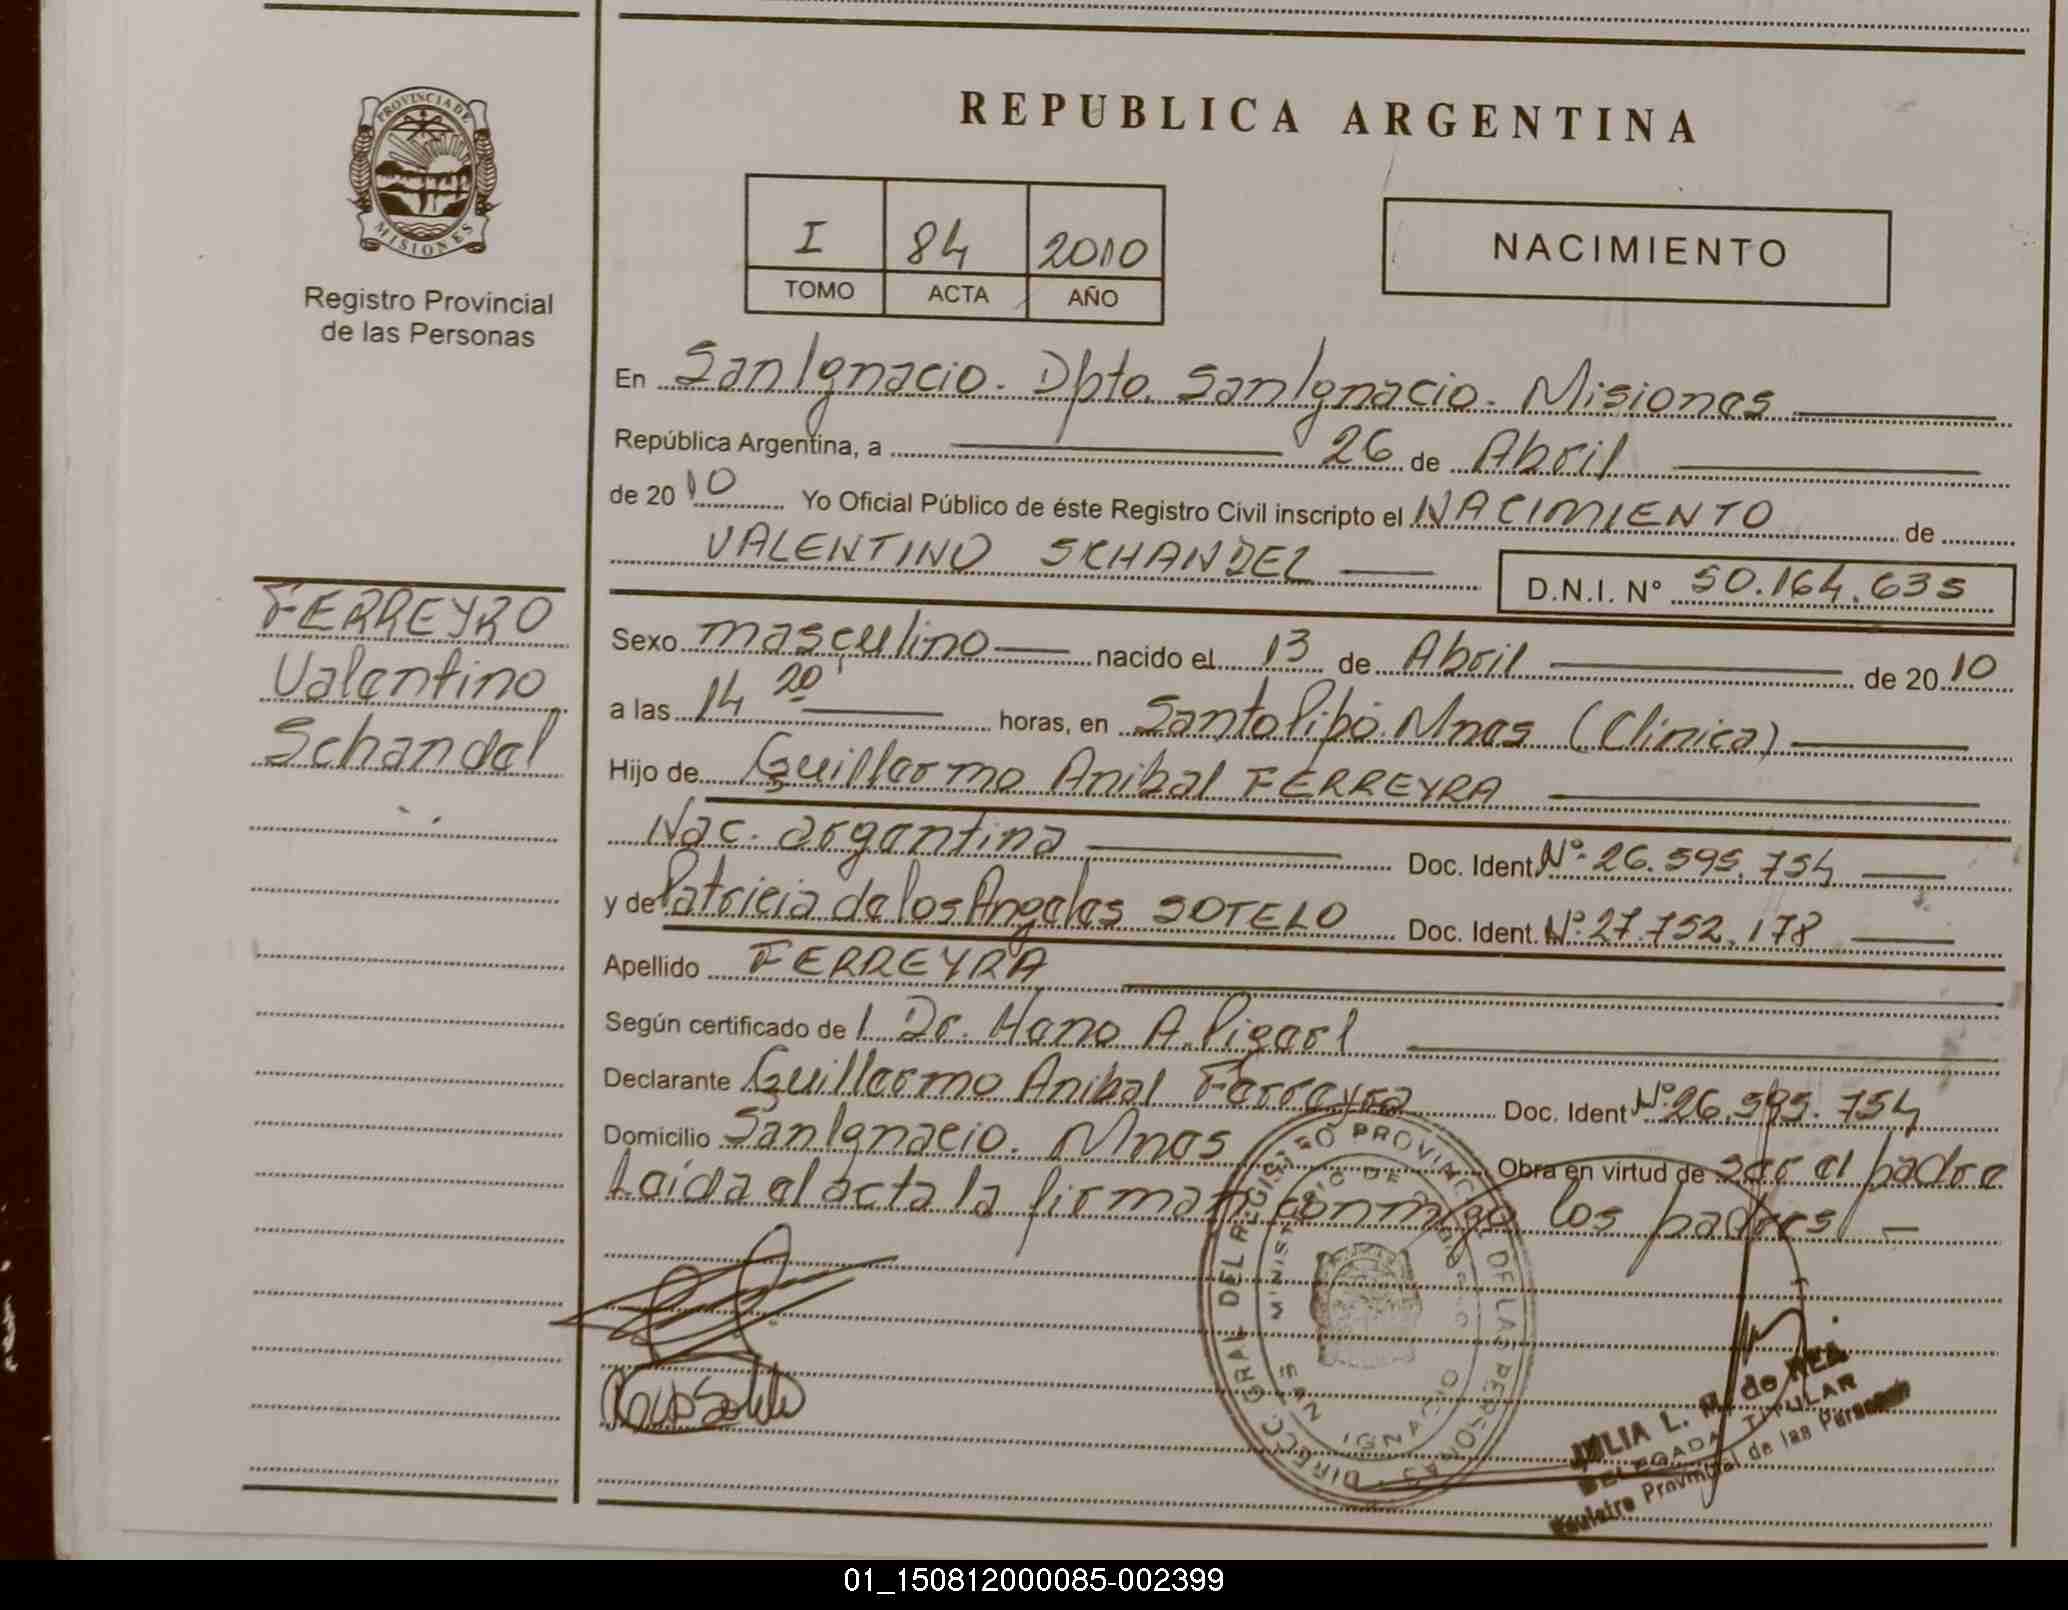 PROVINCIA DE
MISIONES
Registro Provincial
de las Personas
FERREYRO
Valentino
Schandel
REPUBLICA ARGENTINA
I 84 2010
TOMO ACTA AÑO
NACIMIENTO
En San Ignacio. Dpto. San Ignacio. Misiones
República Argentina, a 26 de Abril
de 2010 Yo Oficial Público de éste Registro Civil inscripto el NACIMIENTO de
VALENTINO SCHANDEL
D.N.I. Nº 50.164.635
Sexo masculino nacido el 13 de Abril de 2010
a las 14 20 horas, en Santo Pipó. Mnes (Clínica)
Hijo de Guillermo Anibal FERREYRA
Nac. argentina Doc. Ident Nº: 26.595.754
y de Patricia de los Angeles SOTELO Doc. Ident. Nº: 27.752.178
Apellido FERREYRA
Según certificado de l Dr. A.
Declarante Guillermo Anibal Ferreyra Doc. Ident Nº: 26.595.754
Domicilio San Ignacio. Mnes Obra en virtud de ser el padre
Leída el acta la firman conmigo los padres
DIRECC GRAL DEL REGISTRO PROVINCIAL DE LAS PERSONAS
MINISTERIO DE
JULIA L. M. de
DELEGADA TITULAR
Registro Provincial de las Personas
01_150812000085-002399